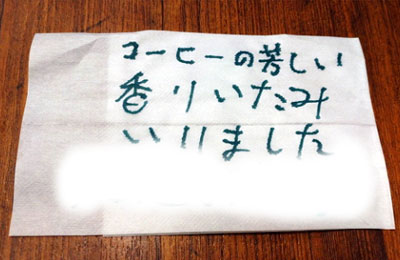 コーヒーの芳しい
香りいたみ
いりました